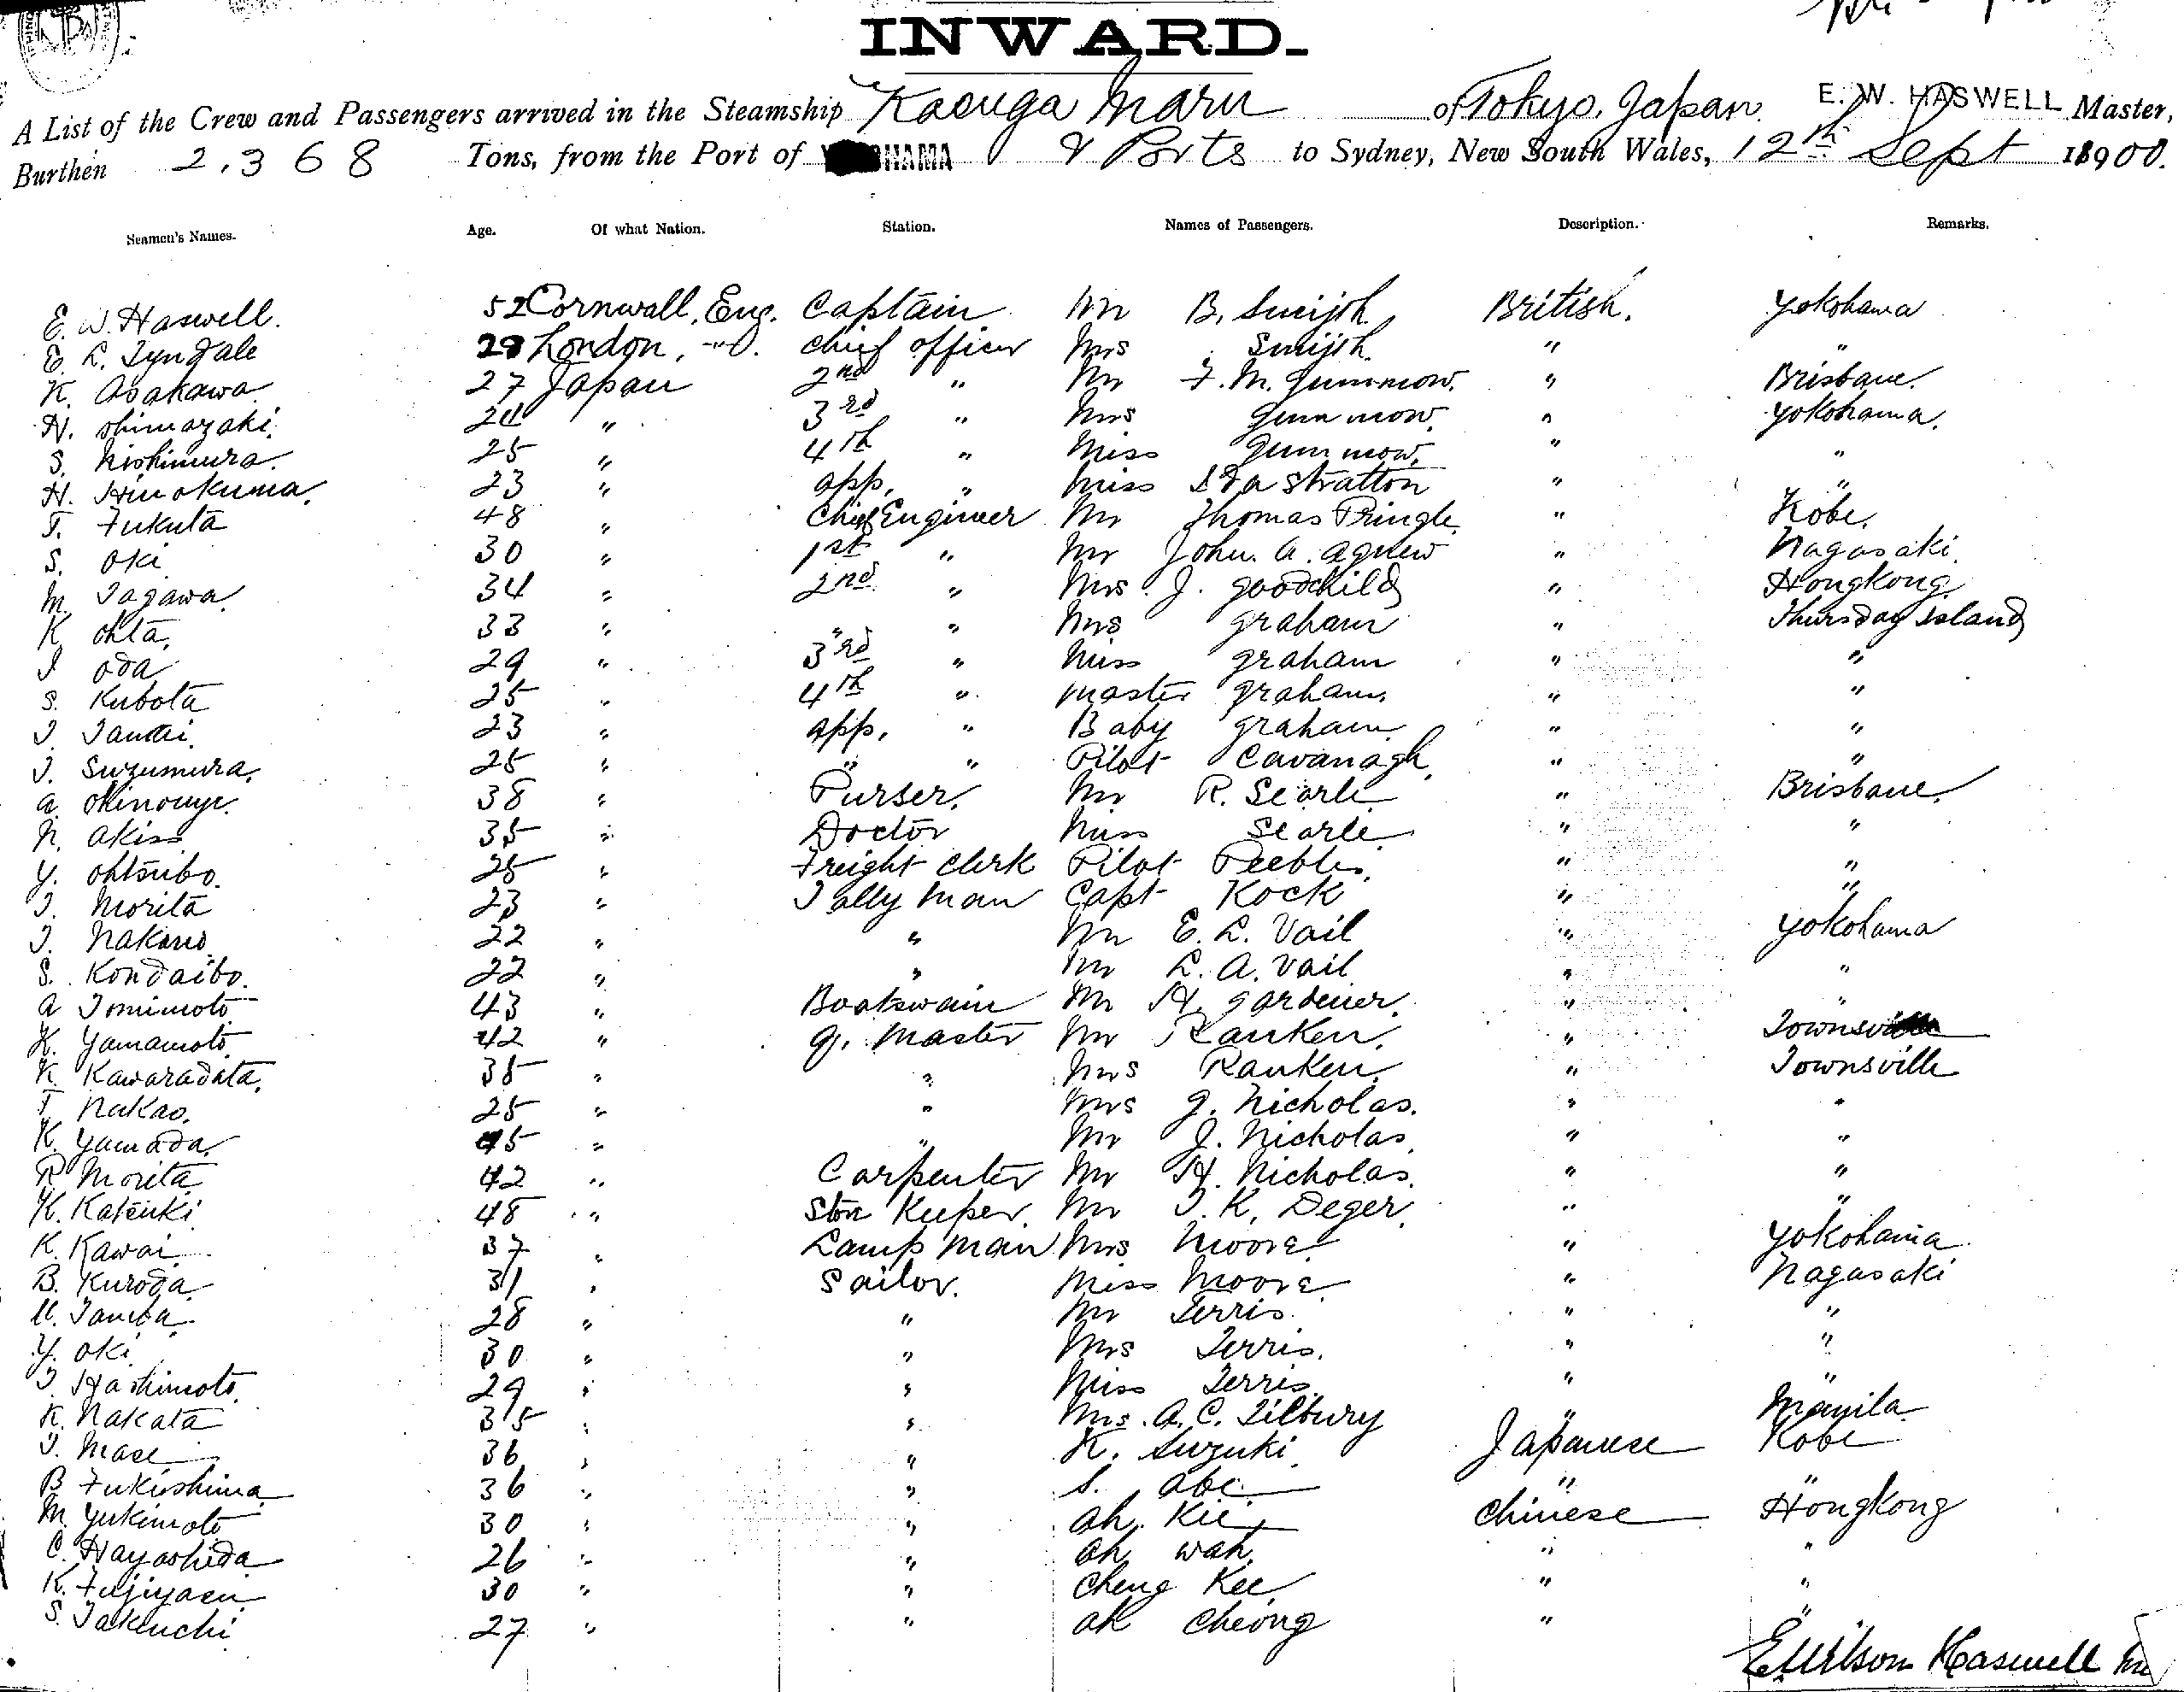 INWARD.
A List of the Crew and Passengers arrived in the Steamship Kasuga Maru of Tokyo, Japan. E. W. HASWELL Master,
Burthen 2,368 Tons, from the Port of HAMA & Ports to Sydney, New South Wales, 12th Sept 18900.
Seamen's Names. Age. Of what Nation. Station. Names of Passengers. Description. Remarks.
E. W. Haswell. 52 Cornwall, Eng. Captain Mr B. Smijth British. Yokohama
E. L. Tyndale 28 London, -"O. Chief officer Mrs Smijth. " "
K. Asakawa 27 Japan 2nd " Mr F. M. Gummow. " Brisbane.
H. Shimazaki. 24 " 3rd " Mrs Gummow. " Yokohama.
S. Nishimura. 25 " 4th " Miss Gummow. " "
H. Hinokuma. 23 " app. " Miss Ida Stratton " "
T. Fukuta 48 " Chief Engineer Mr Thomas Pringle. " Kobe.
S. Oki 30 " 1st " Mr John. A. Agnew " Nagasaki.
M. Tagawa. 34 " 2nd " Mrs J. Goodchild " Hongkong.
K Ohta. 33 " " " Mrs Graham " Thursday Island
I Oda 29 " 3rd " Miss Graham " "
S. Kubota 25 " 4th " Master Graham. " "
T. Tandai. 23 " app. " Baby Graham. " "
T. Suzumura. 25 " " " Pilot Cavanagh. " "
A. Okinouye. 38 " Purser. Mr R. Searle " Brisbane.
N. Akiss 35 " Doctor Miss Searle " "
Y. Ohtsubo. 25 " Freight Clerk Pilot Peebles. " "
T. Morita 23 " Tally Man Capt Kock " "
T. Nakano. 22 " " Mr E. L. Vail " Yokohama
S. Kondaibo. 22 " " Mr L. A. Vail " "
A Tomimoto 43 " Boatswain Mr H. Gardener. " "
K. Yamamoto. 42 " Q. Master Mr Ranken. " Townsville
K. Kawaradata. 35 " " Mrs Ranken. " Townsville
T Nakao. 25 " " Mrs G. Nicholas. " "
K. Yamada. 45 " " Mr J. Nicholas. " "
R Morita 42 " Carpenter Mr H. Nicholas. " "
K. Katsuki 48 " Store Keeper. Mr T. K. Deger. " "
K. Kawai 37 " Lamp Man Mrs Moore " Yokohama.
B. Kuroda 31 " Sailor. Miss Moore " Nagasaki
28 " " Mr Ferris. " "
Y. Oki 30 " " Mrs Ferris. " "
T Hashimoto. 29 " " Miss Ferris. " "
K. Nakata 35 " " Mrs. A. C. Tilbury " Manila
T. Mase 36 " " K. Suzuki Japanese Kobe
B Fukushima 36 " " S. Abe. " "
M. Yukimoto 30 " " Ah. Kee Chinese Hongkong
C. Hayashida 26 " " Ah Wah. " "
K. Fujiyasu 30 " " Cheng Kee " "
S. Takeuchi 27 " " Ah Cheong " "
E Wilson Haswell